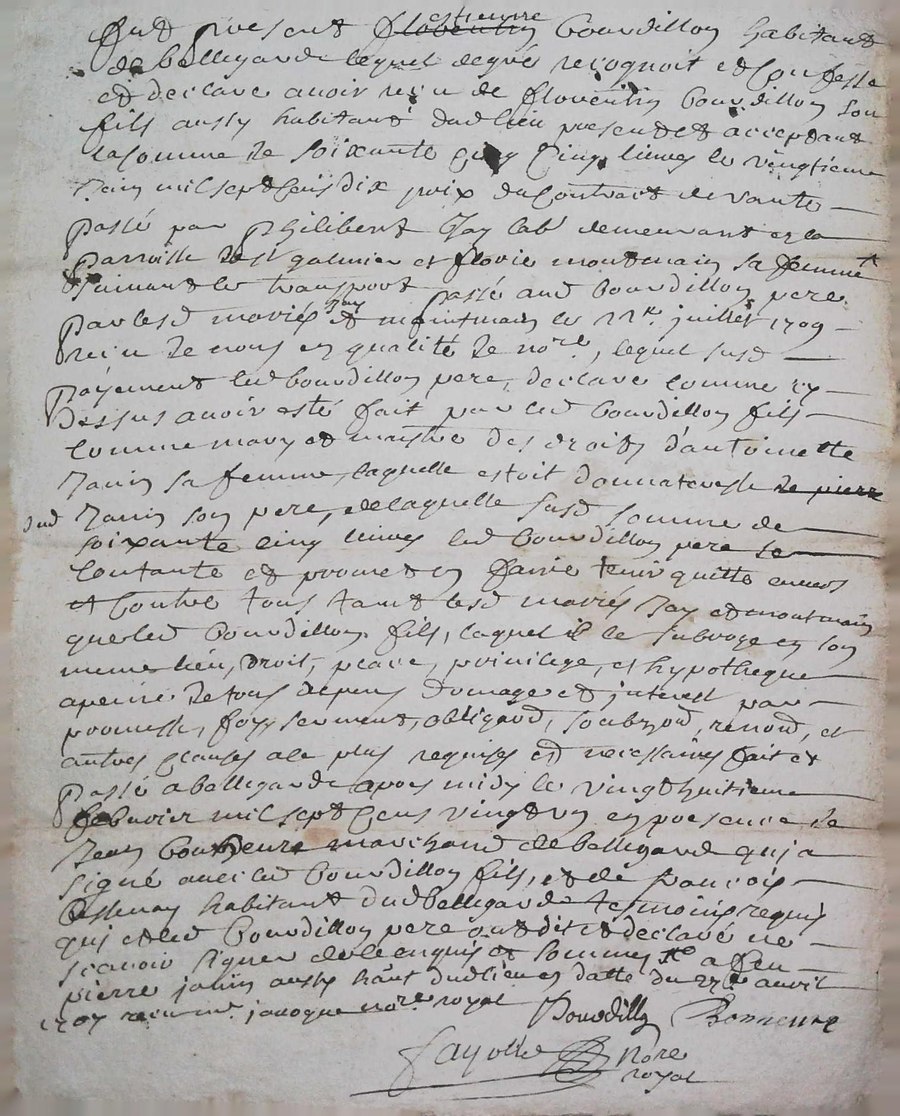 Fut present estienne Bourdillon habitant
de bellegarde lequel de gré recognoit et Confesse
et declare avoir reçu de florentin Bourdillon son
fils aussy habitant dud lieu present et acceptant
la somme de soixante Cinq livres le vingtieme
mil sept Cens dix prix du Contract de vante
passé par philibert Jay lab. demeurant en la
parroisse de St galmier et florie montmain sa femme
suivant le transport passé aud bourdillon pere
par lesd mariés Jay et montmain le juillet 1709
reçu de nous en qualité de nore, lequel susd
payement led bourdillon pere, declare comme cy
dessus avoir esté fait par led bourdillon fils
comme mary et maistre des droits d'antoinette
Janin sa femme, laquelle estoit donnateresse de pierre
dud Janin son pere, de laquelle susd somme de
soixante cinq livres led Bourdillon pere se
contante et promet en faire tenir quitte envers
et Contre tous tant lesd mariés Jay et montmain
que led Bourdillon fils, lequel il le subroge en son
meme lieu, droit, place, privilege, et hypotheque
a peine de tous depens domage et interest par
promesse, foy, serment, obligaon, soubzon, renon, et
autres clauses a le plus requises et necessaires fait et
passé a bellegarde apres midy le vingt huitieme
febvrier mil sept Cens vingt un en presence de
Jean Bonneure marchand de bellegarde qui a
signé avec led Bourdillon fils, et de francois
habitant dud bellegarde temoins requis
qui et led Bourdillon pere ont dit et declaré ne
scavoir signer de ce enquis et sommés a feu
pierre janin aussy habt dud lieu en datte du avril
1707 reçu me. javogue nore royal Bourdillon Bonneure
fayolle Nore
royal